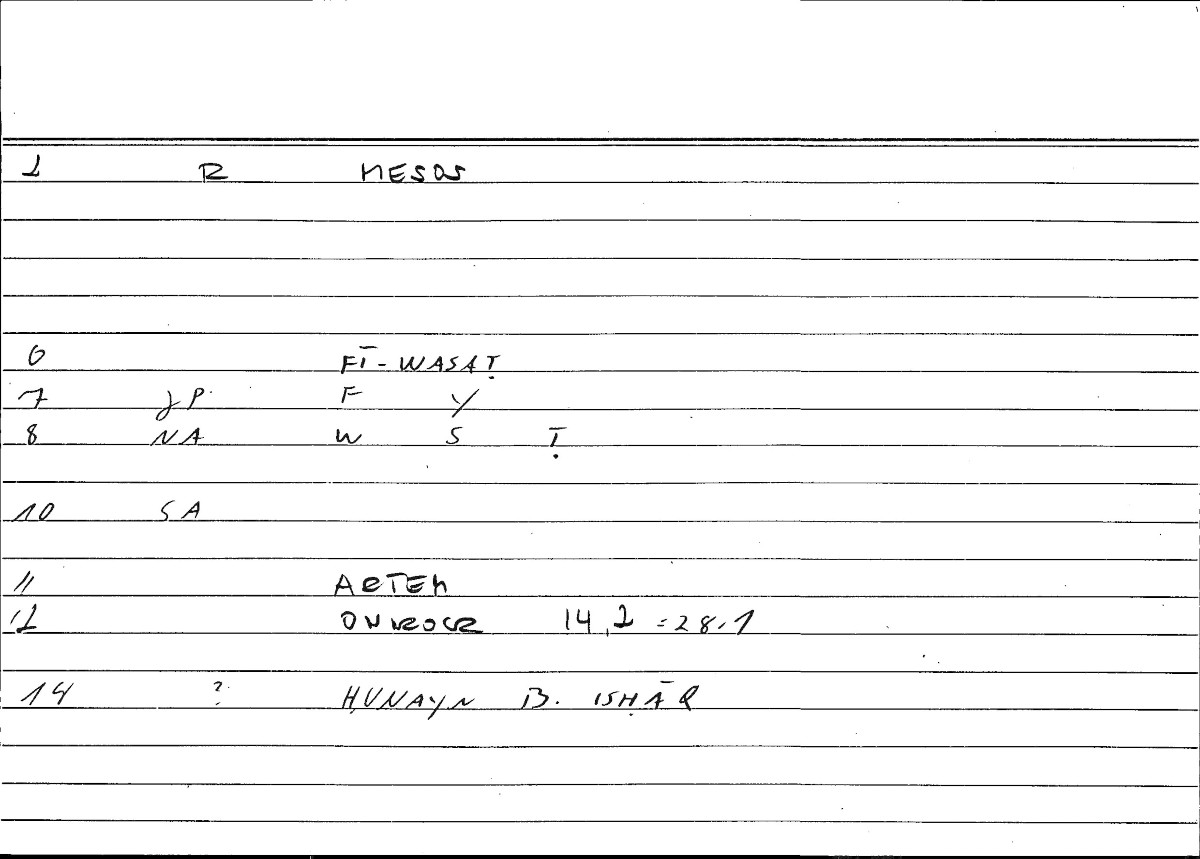 1 R MESOS
6 FĪ-WASAṬ
7 JP. F Y
8 NA W S Ṭ
10 SA
11 ARTEM
12 ONIROCR 14,2 = 28.1
14 ? ḤUNAYN B. ISḤĀQ